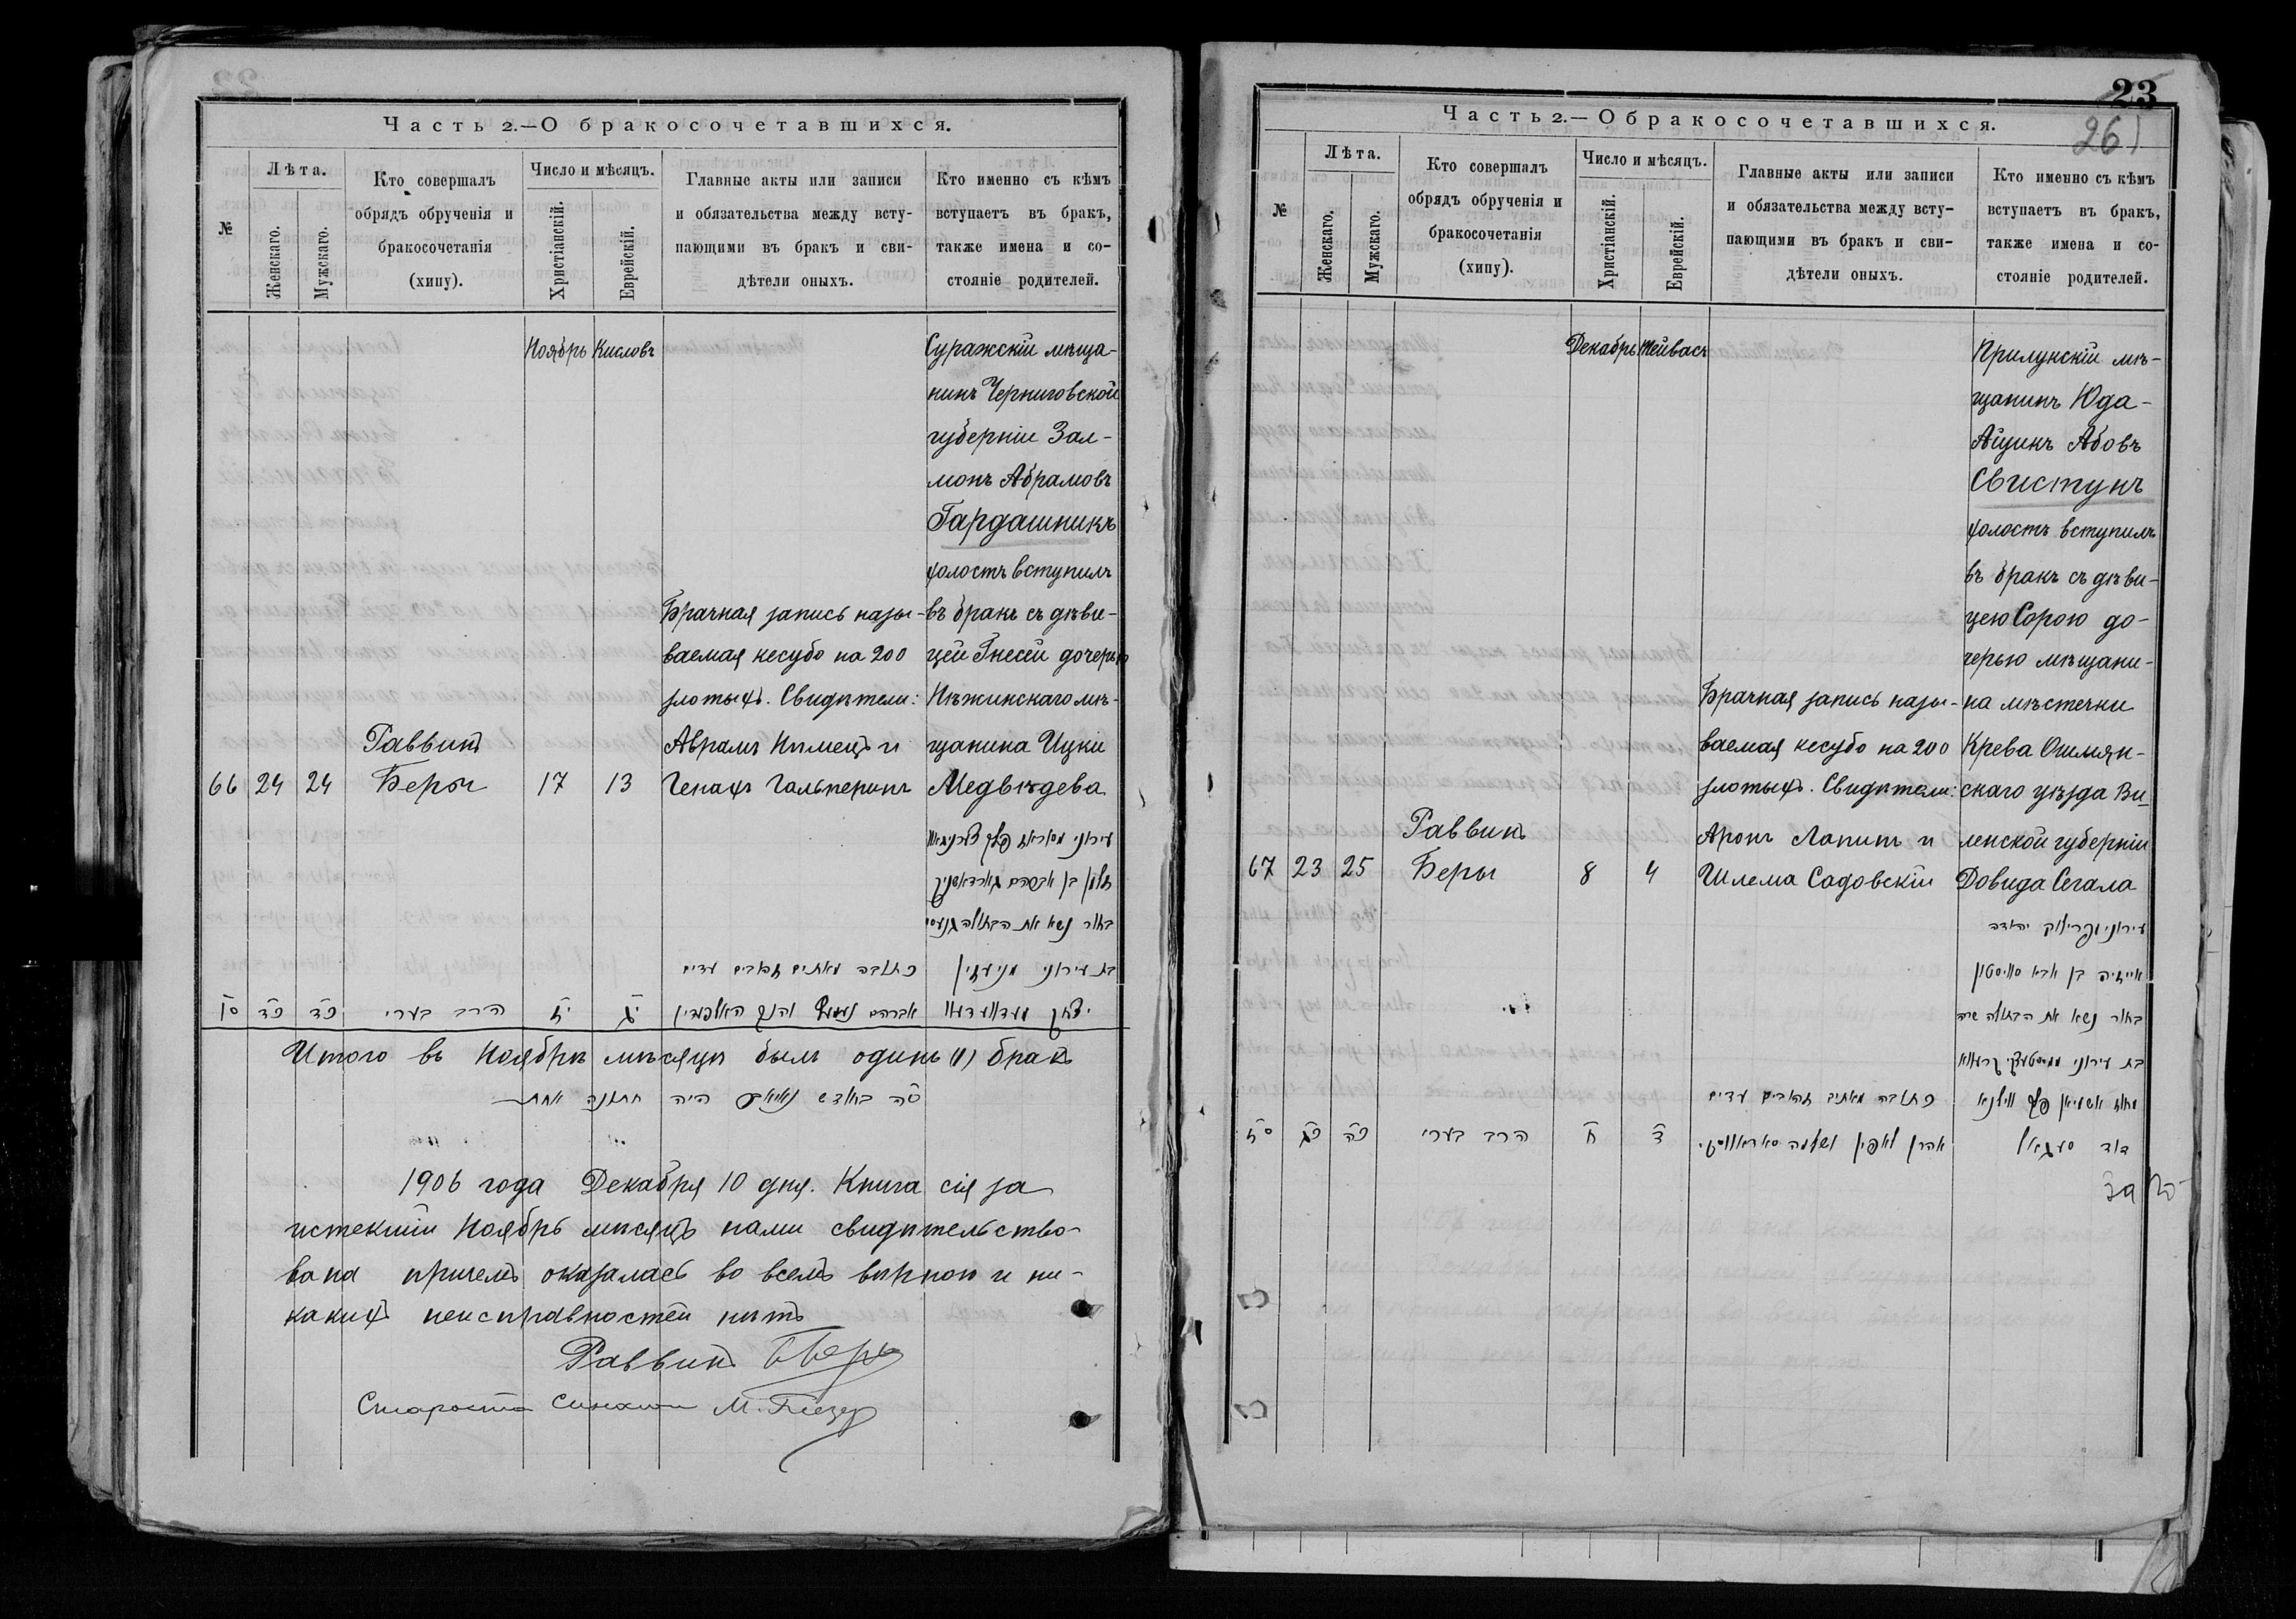 Часть 2.—О бракосочетавшихся.
№
Лѣта.
Женскаго.
Мужскаго.
Кто совершалъ
обрядъ обрученія и
бракосочетанія
(хипу).
Число и мѣсяцъ.
Христіанскій.
Еврейскій.
Главные акты или записи
и обязательства между всту-
пающими въ бракъ и сви-
дѣтели оныхъ.
Кто именно съ кѣмъ
вступаетъ въ бракъ,
также имена и со-
стояніе родителей.
66
24
24
Раввинъ
Беръ
Ноябрь
17
Кисловъ
13
Брачная запись назы-
ваемая кесубо на 200
злотыхъ. Свидѣтели:
Аврамъ Нимецъ и
Генахъ Гальперинъ
Суражскій мѣща-
нинъ Черниговской
губерніи Зал-
монъ Абрамовъ
Гардашникъ
холостъ вступилъ
въ бракъ съ дѣви-
цей Гнесей дочерью
Нѣжинскаго мѣ-
щанина Ицки
Медвѣдева
בת עירוני מניעזין
כתובה מאתים זהובים עדים
הרב בערי
יג
כד
כד
Итого въ Ноябрѣ мѣсяцѣ былъ одинъ (1) бракъ
סה בחדש נאיאבר היה חתונה אחת
1906 года Декабря 10 дня. Книга сія за
истекшій Ноябрь мѣсяцъ нами свидѣтельство-
вана причемъ оказалась во всемъ вѣрною и ни-
какихъ неисправностей нѣтъ
Раввинъ Беръ
Староста М.
23
261
Часть 2.—О бракосочетавшихся.
№
Лѣта.
Женскаго.
Мужскаго.
Кто совершалъ
обрядъ обрученія и
бракосочетанія
(хипу).
Число и мѣсяцъ.
Христіанскій.
Еврейскій.
Главные акты или записи
и обязательства между всту-
пающими въ бракъ и сви-
дѣтели оныхъ.
Кто именно съ кѣмъ
вступаетъ въ бракъ,
также имена и со-
стояніе родителей.
67
23
25
Раввинъ
Беръ
Декабрь
8
Тейвасъ
4
Брачная запись назы-
ваемая кесубо на 200
злотыхъ. Свидѣтели:
Аронъ Лапинъ и
Шлема Садовскій
Прилукскій мѣ-
щанинъ Юда-
Айцикъ Абовъ
Свистунъ
холостъ вступилъ
въ бракъ съ дѣви-
цею Сорою до-
черью мѣщани-
на мѣстечки
Крева Ошмян-
скаго уѣзда Ви-
ленской губерніи
Довида Сегала
בחור נשא את הבתולה שרה
כתובה מאתים זהובים עדים
דוד סעגאל
הרב בערי
ח
ד
כה
כג